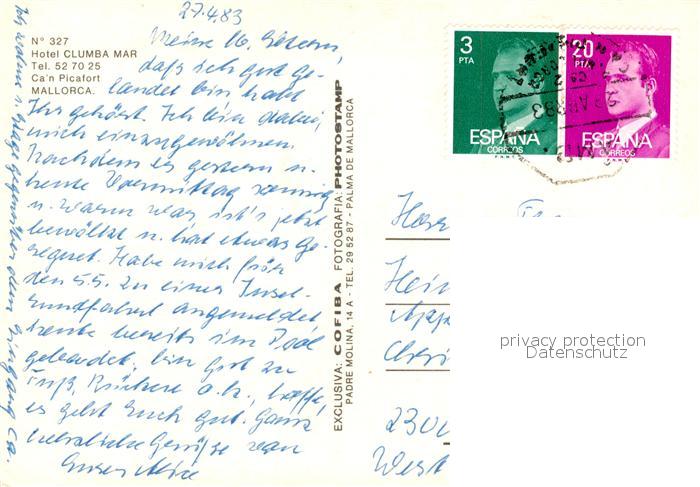 27.4.83
N° 327
Hotel CLUMBA MAR
Tel. 52 70 25
Ca'n Picafort
MALLORCA.
Meine lb. Eltern,
daß ich gut ge-
landet bin habt
Ihr gehört. Ich bin dabei,
mich einzugewöhnen.
Nachdem es gestern u.
heute Vormittag sonnig
u. warm war ist's jetzt
bewölkt u. hat etwas ge-
regnet. Habe mich für
den 5.5. zu einer Insel-
rundfahrt angemeldet
heute bereits im Pool
gebadet, bin gut zu
Fuß, Bücher o.k., hoffe,
es geht Euch gut. Ganz
herzliche Grüße von
Eurer
Ich wohne gegenüber dem Eingang Ca.
EXCLUSIVA: COFIBA FOTOGRAFIA: PHOTOSTAMP
PADRE MOLINA, 14 A - TEL. 29 52 87 - PALMA DE MALLORCA
3
PTA
ESPAÑA
CORREOS
F.N.M.T.
20
PTA
ESPAÑA
CORREOS
F.N.M.T.
Herr
Hein
Appe
Chri
2300
West
privacy protection
Datenschutz